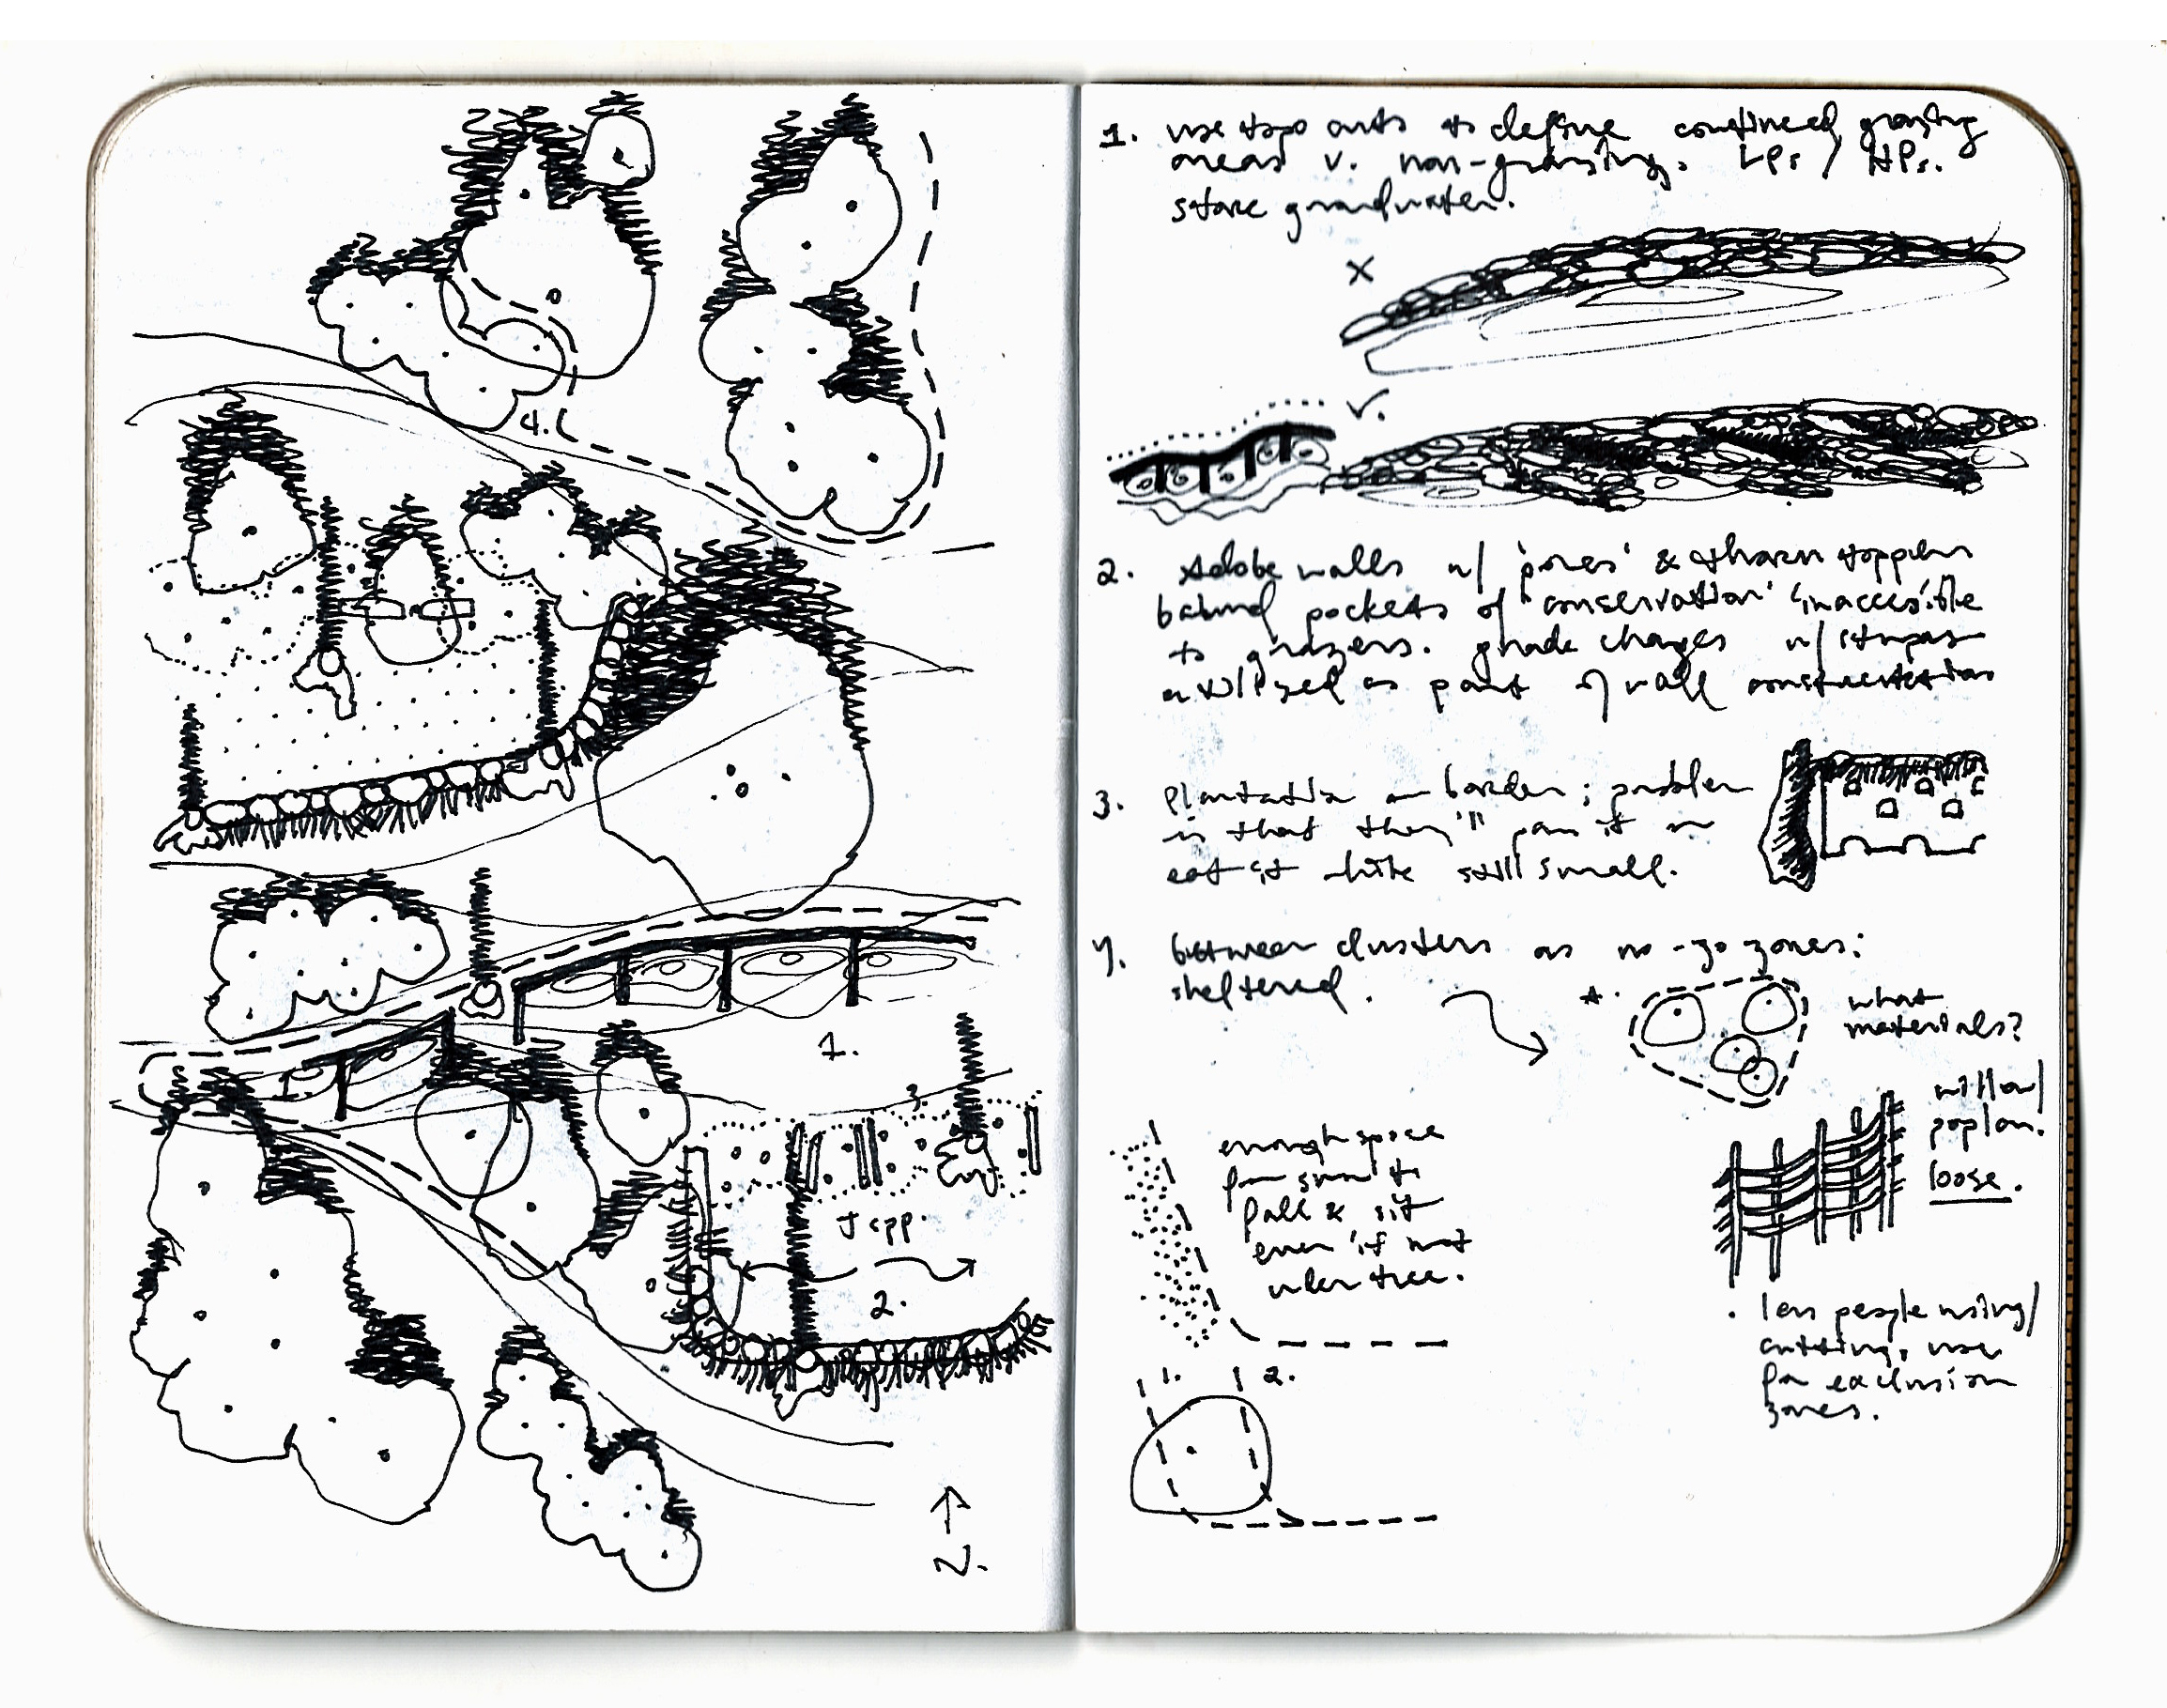 4.
1.
3.
J cpp.
2.
N.
1. use topo cuts to define continued grazing
areas v. non-grazing. LPs / HPs.
store groundwater.
x
2. Adobe walls w/ 'pores' & thorn toppers
behind pockets of 'conservation' inaccessible
to grazers. grade changes w/ stupas
utilized as part of wall construction
3. Plantation on border; problem
is that they'll pan it or
eat it while still small.
4. between clusters as no-go zones:
sheltered.
what
materials?
willow/
poplar.
loose.
enough space
for snow to
fall & sit
even if not
under tree.
. less people using/
cutting, use
for exclusion
zones.
1. 2.